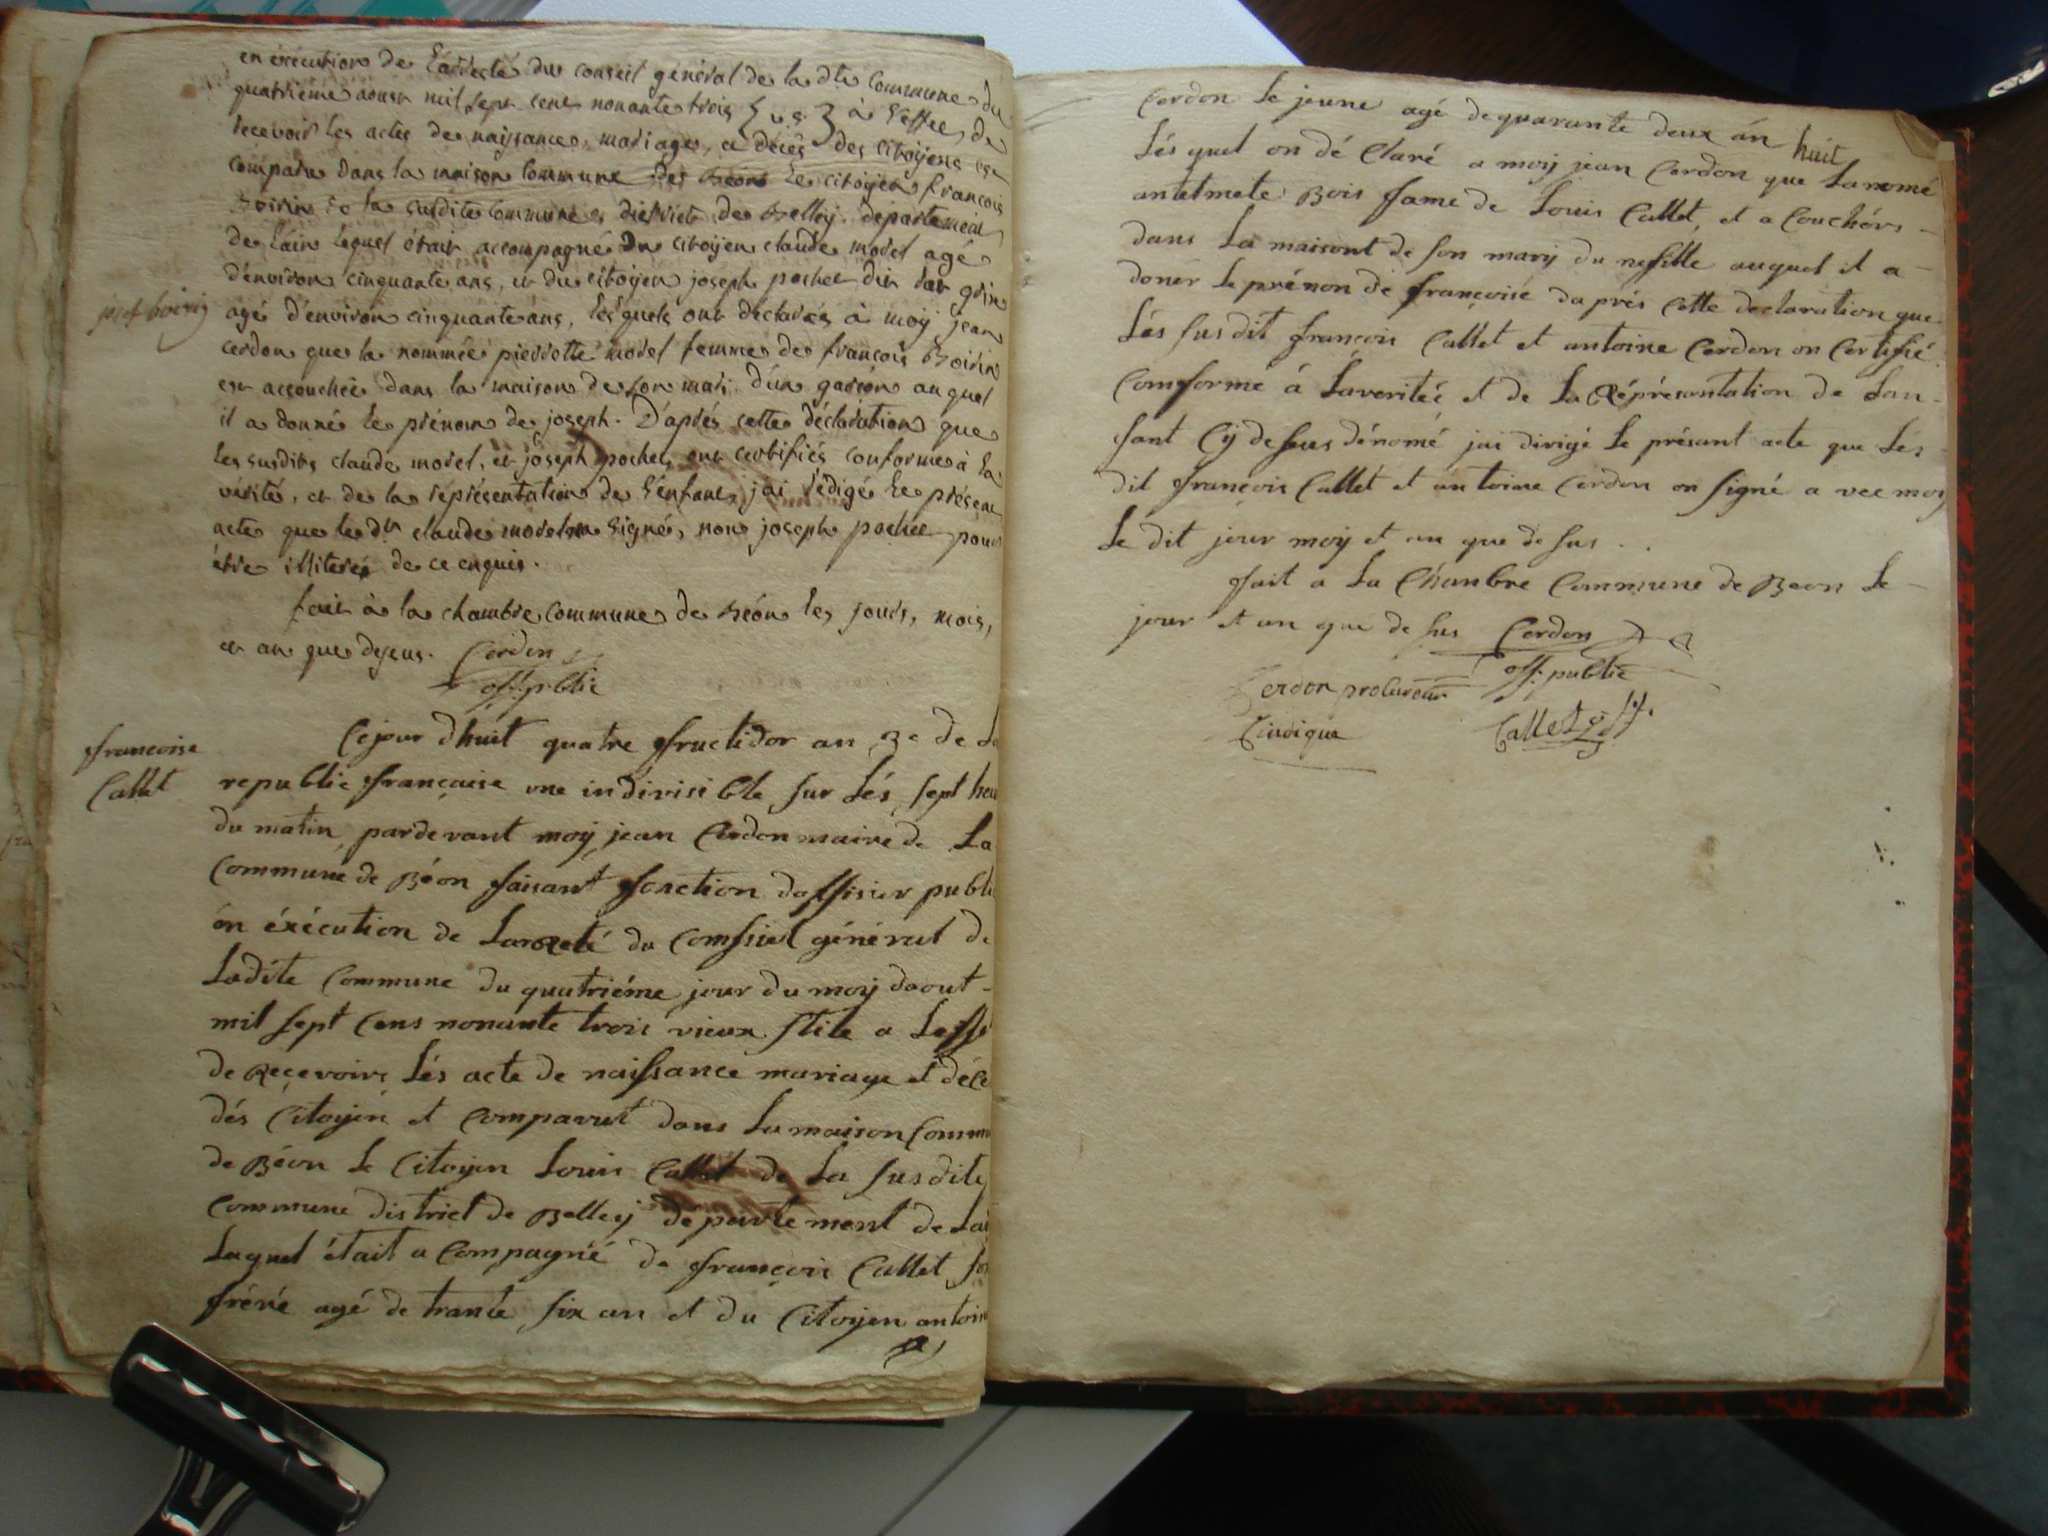 en exécution de l'arresté du conseil général de la dte commune du
quatrième aoust mil sept cent nonante trois { v. s. } à l'effet de
recevoir les actes de naissance, mariage, et décès des citoyens est
comparu dans la maison commune de Béon le citoyen françois
Boirin de la susdite commune district de Belley. département
de l'ain lequel étoit accompagné du citoyen claude morel agé
d'environ cinquante ans, et du citoyen joseph pochet dit
agé d'environ cinquante ans, lesquels ont déclarés à moy jean
josef boirin
cerdon que la nommée pierrette morel femme de françois Boirin
est accouchée dans la maison de son mari d'un garçon auquel
il a donné le prénom de joseph. D'après cette déclaration que
les susdits claude morel, et joseph pochet ont certifiés conforme à la
vérité, et de la représentation de l'enfant, j'ai rédigé le présent
acte que le dt claude morel a signé, non joseph pochet pour
être illiteré de ce enquis.
fait à la chambre commune de Béon les jours, mois,
et an que dessus. Cerdon
off. public
francoise
Callet
Cejour d'huit quatre fructidor an 3e de La
republic française une indivisible sur Lés sept heu
du matin pardevant moy jean Cerdon maire de La
Commune de Béon faisant fonction doffisier publi
én éxécution de Lareté du Comsiel général de
Ladite Commune du quatriéme jour du moy daout
mil sept Cens nonante trois vieux stile a Leffet
de Reçevoir Lés acte de naissance mariage et déce
dés Citoyén et Comparut dans La maison Commu
de Béon le Citoyen Louis Callet de La susdite
Commune district de Belley département de Lai
Laquel était acompagné de françois Callet son
fréré agé de trante six an et du Citoyen antoine
Cerdon le jeune agé de quarante deux án huit
Lés quel on déClaré a moy jean Cerdon que La nomé
antelmete Bois fame de Louis Callet, et a Couchérs
dans La maisont de son mary du ne fille auquel il a
donér le prénon de françoise daprés Cette declaration que
Lés susdit françois Callet et antoine Cerdon on Certifié
Comformé á Laverité et de La Réprésantation de Lan-
fant Cy desus dénomé jai dirigé le présant acte que Lés
dit françois Callet et antoine Cerdon on signé a vec moy
Le dit jour moy et an que desus . .
fait a La Chambre Commune de Beon le
jour et an que de sus Cerdon
off. public
Cerdon procureur
Cindique
Callet off.